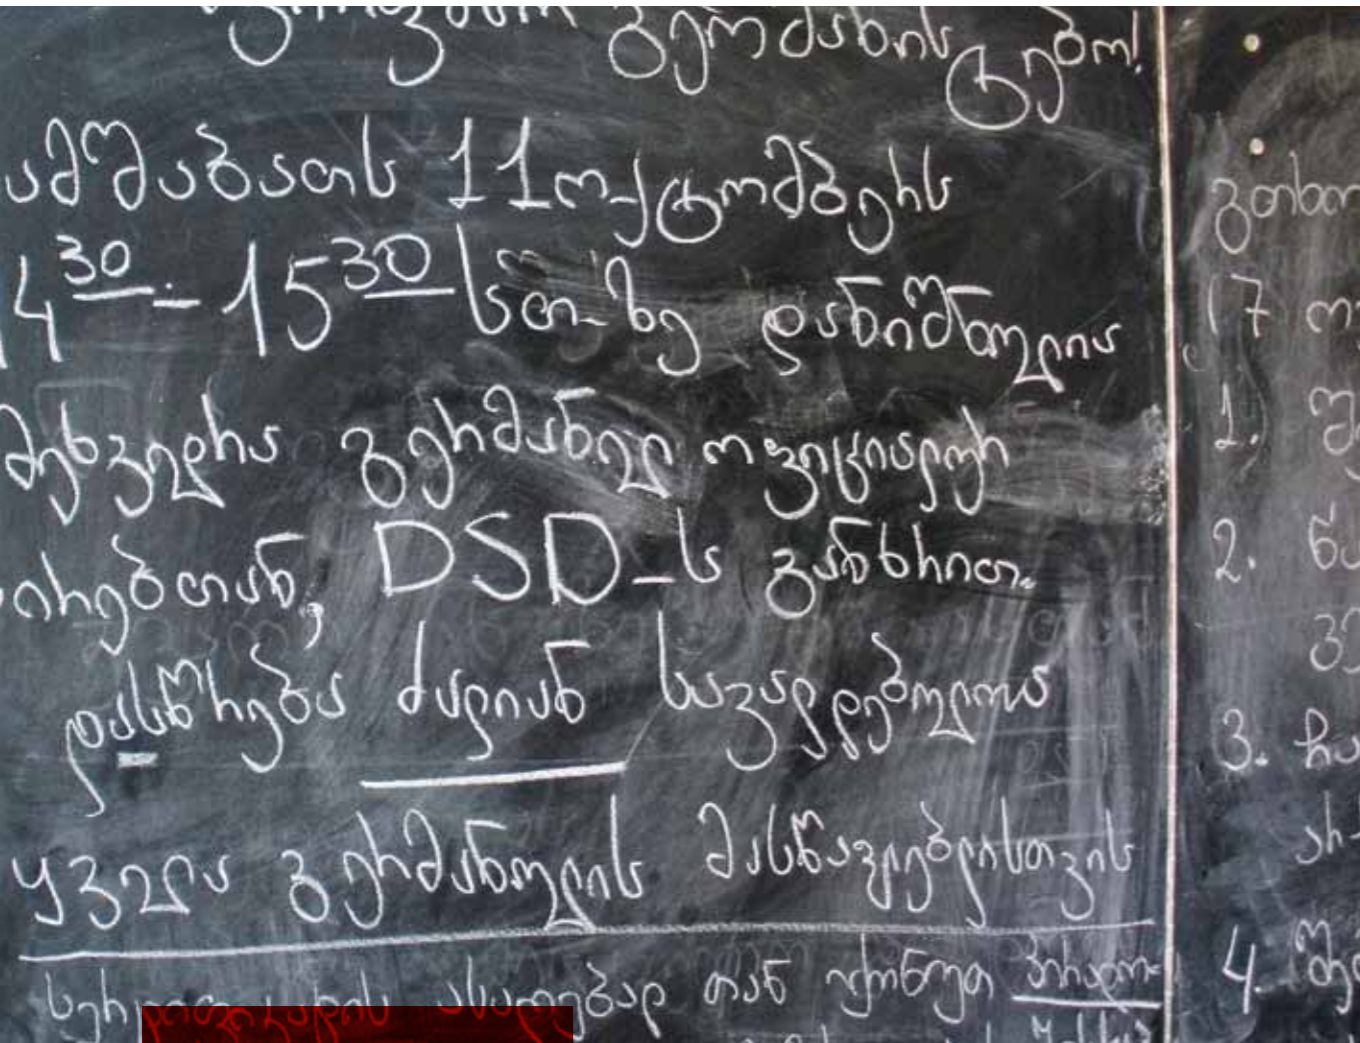 გერმანისტებო!
შაბათს 11 ოქტომბერს
14 30 - 15 30 სთ-ზე დანიშნულია
შეხვედრა გერმანელ ოფიციალურ
პირებთან, DSD-ს განხრით.
დასწრება ძალიან სავალდებულოა
ყველა გერმანულის მასწავლებლისთვის
სერტიფიკატის ასაღებად თან იქონეთ პირადო-
გთხო
17 ო
1. შე
2. წა
3. ჩა
არ
4.